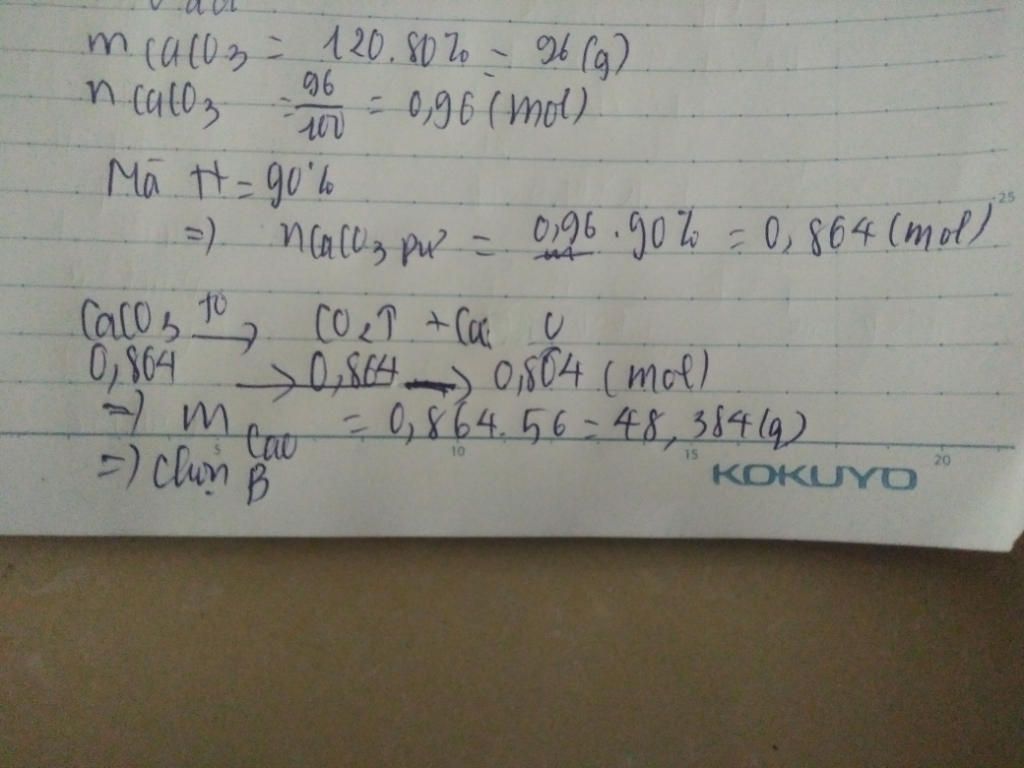 mCaCO3 = 120.80% = 96(g)
nCaCO3 = 96/100 = 0,96 (mol)
Mà H = 90%
=) nCaCO3 pứ = 0,96 . 90% = 0,864 (mol)
25
CaCO3 to → CO2↑ + Ca O
0,864 → 0,864 → 0,864 (mol)
=) m CaO = 0,864.56 = 48,384(g)
5 10 15 20
=) Chọn B
KOKUYO